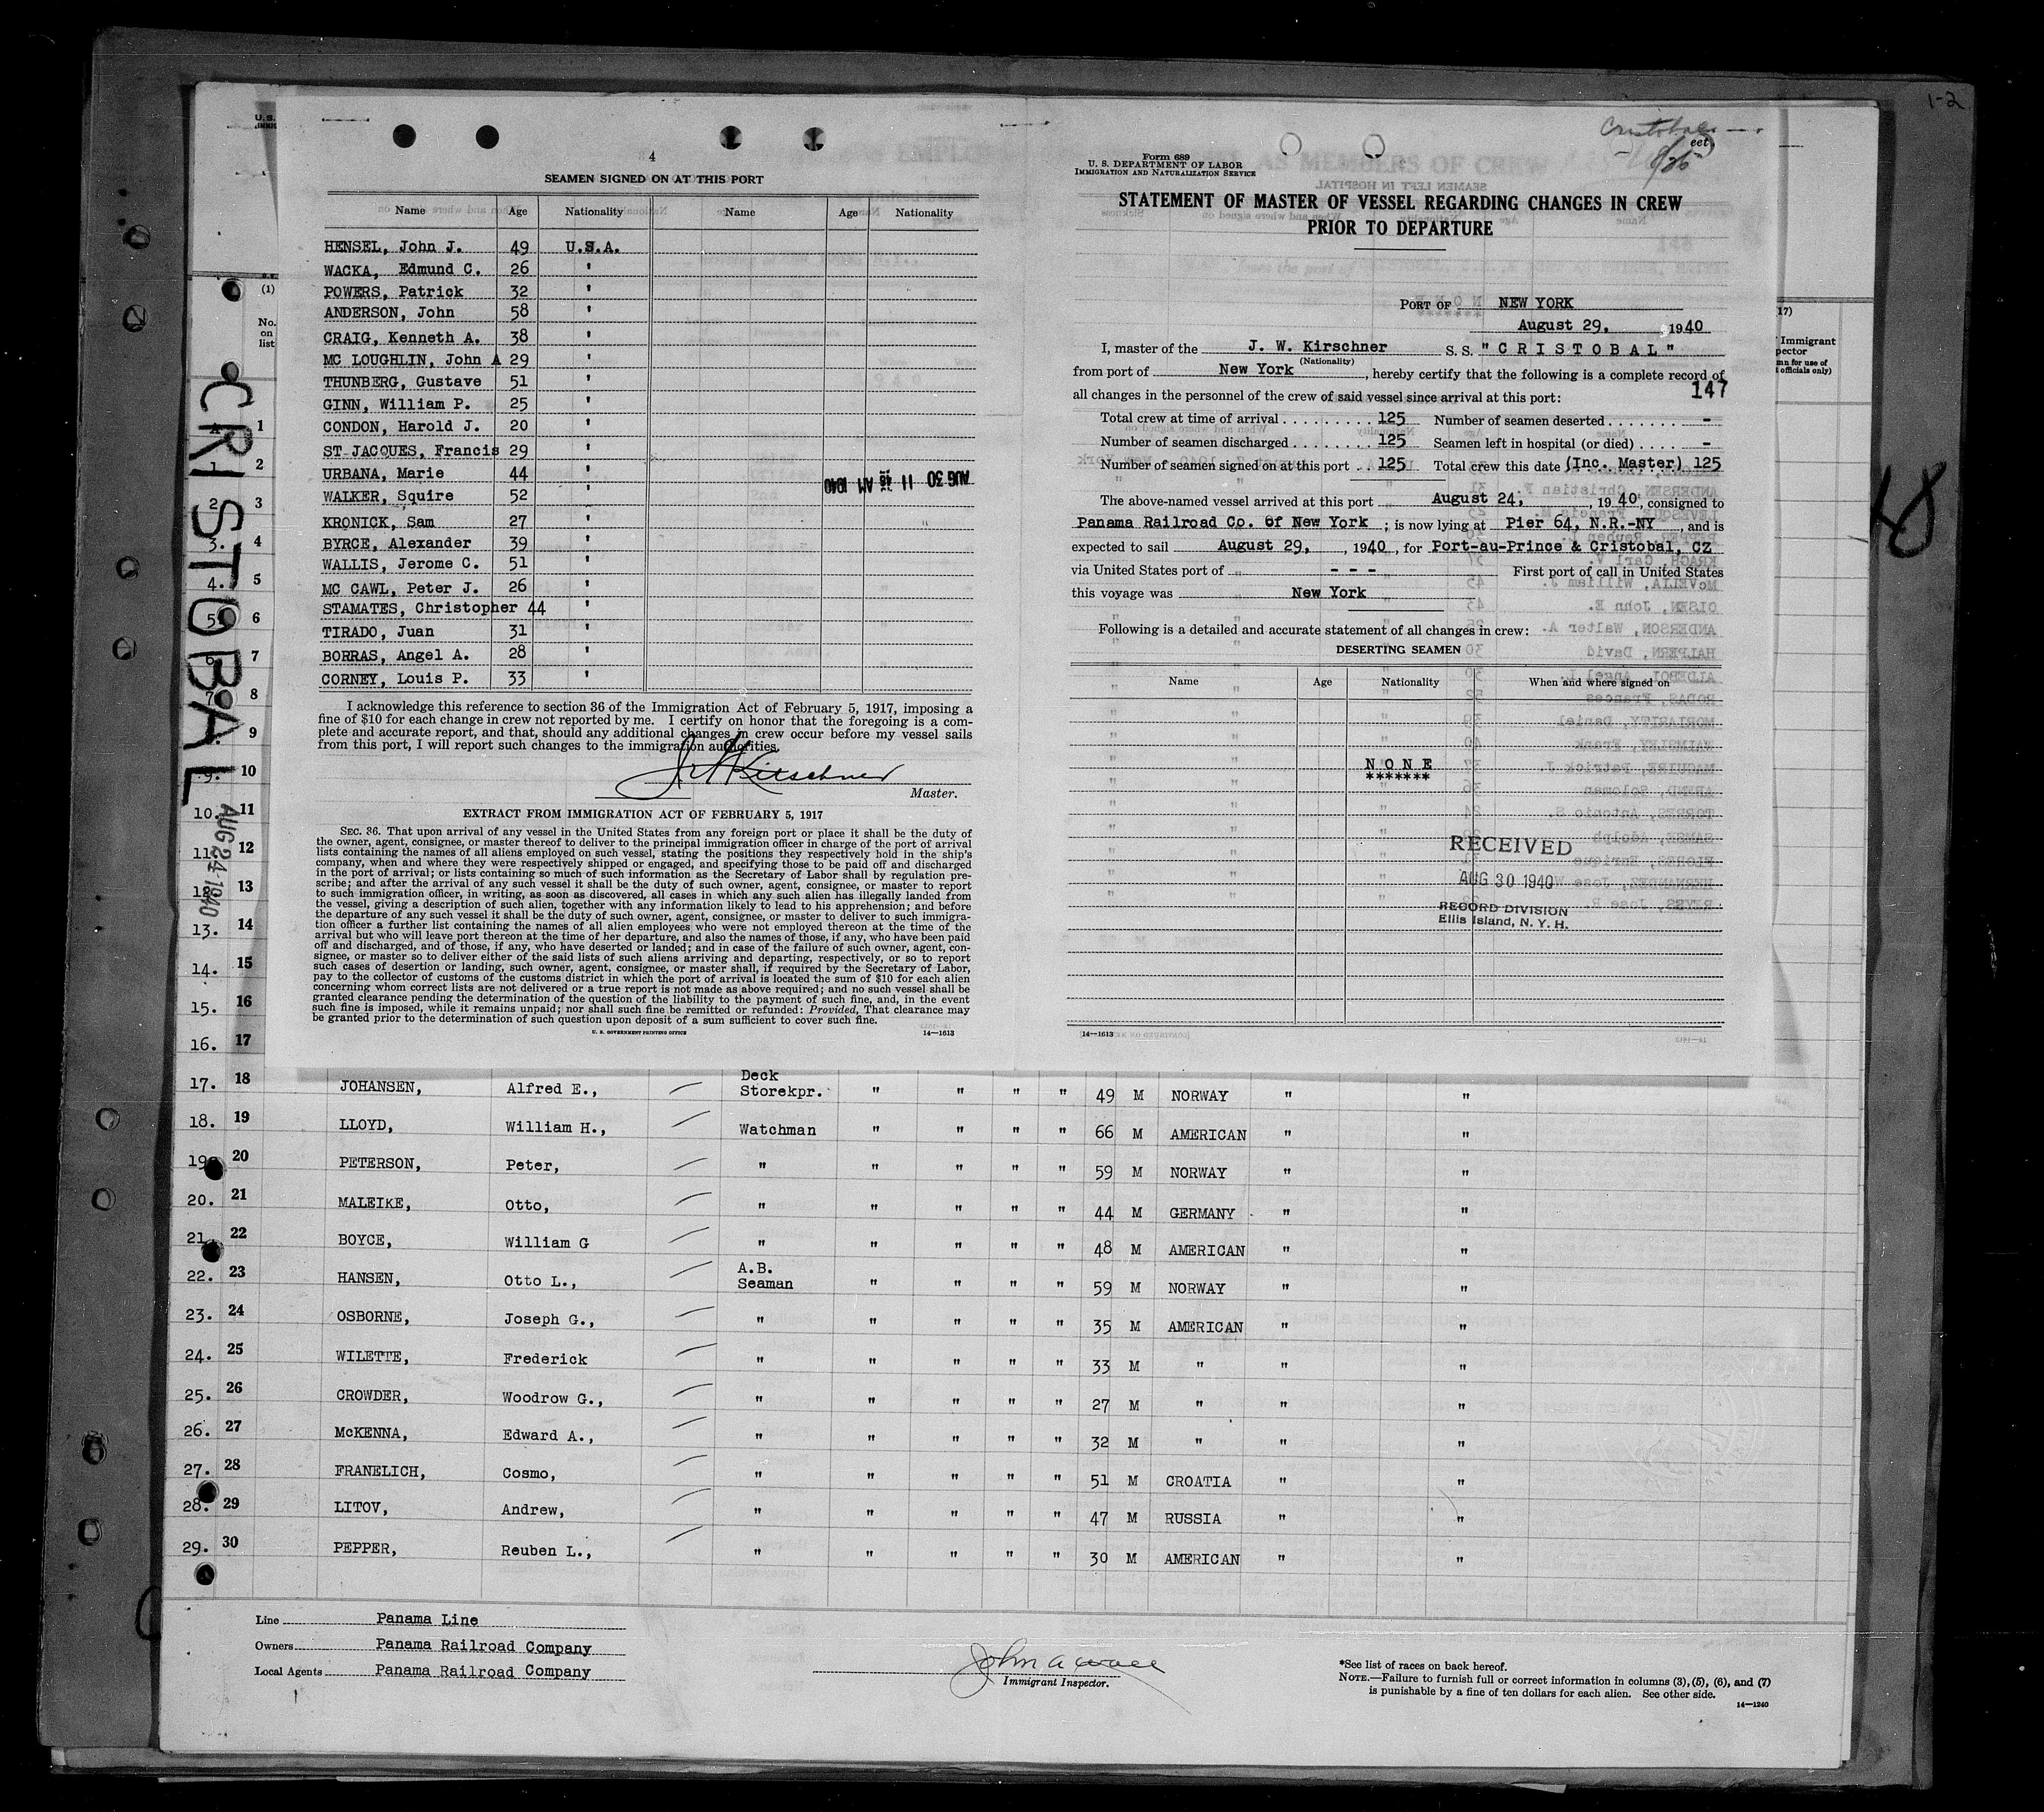 1-2
4
SEAMEN SIGNED ON AT THIS PORT
Name Age Nationality Name Age Nationality
HENSEL, John J. 49 U.S.A.
WACKA, Edmund C. 26 '
POWERS, Patrick 32 '
ANDERSON, John 58 '
CRAIG, Kenneth A. 38 '
MC LOUGHLIN, John A 29 '
THUNBERG, Gustave 51 '
GINN, William P. 25 '
CONDON, Harold J. 20 '
ST JACQUES, Francis 29 '
URBANA, Marie 44 '
WALKER, Squire 52 '
KRONICK, Sam 27 '
BYRCE, Alexander 39 '
WALLIS, Jerome C. 51 '
MC CAWL, Peter J. 26 '
STAMATES, Christopher 44 '
TIRADO, Juan 31 '
BORRAS, Angel A. 28 '
CORNEY, Louis P. 33 '
AUG 30 11 AM 1940
I acknowledge this reference to section 36 of the Immigration Act of February 5, 1917, imposing a
fine of $10 for each change in crew not reported by me. I certify on honor that the foregoing is a com-
plete and accurate report, and that, should any additional changes in crew occur before my vessel sails
from this port, I will report such changes to the immigration authorities.
J W Kirschner
Master.
EXTRACT FROM IMMIGRATION ACT OF FEBRUARY 5, 1917
SEC. 36. That upon arrival of any vessel in the United States from any foreign port or place it shall be the duty of
the owner, agent, consignee, or master thereof to deliver to the principal immigration officer in charge of the port of arrival
lists containing the names of all aliens employed on such vessel, stating the positions they respectively hold in the ship's
company, when and where they were respectively shipped or engaged, and specifying those to be paid off and discharged
in the port of arrival; or lists containing so much of such information as the Secretary of Labor shall by regulation pre-
scribe; and after the arrival of any such vessel it shall be the duty of such owner, agent, consignee, or master to report
to such immigration officer, in writing, as soon as discovered, all cases in which any such alien has illegally landed from
the vessel, giving a description of such alien, together with any information likely to lead to his apprehension; and before
the departure of any such vessel it shall be the duty of such owner, agent, consignee, or master to deliver to such immigra-
tion officer a further list containing the names of all alien employees who were not employed thereon at the time of the
arrival but who will leave port thereon at the time of her departure, and also the names of those, if any, who have been paid
off and discharged, and of those, if any, who have deserted or landed; and in case of the failure of such owner, agent, con-
signee, or master so to deliver either of the said lists of such aliens arriving and departing, respectively, or so to report
such cases of desertion or landing, such owner, agent, consignee, or master shall, if required by the Secretary of Labor,
pay to the collector of customs of the customs district in which the port of arrival is located the sum of $10 for each alien
concerning whom correct lists are not delivered or a true report is not made as above required; and no such vessel shall be
granted clearance pending the determination of the question of the liability to the payment of such fine, and, in the event
such fine is imposed, while it remains unpaid; nor shall such fine be remitted or refunded: Provided, That clearance may
be granted prior to the determination of such question upon deposit of a sum sufficient to cover such fine.
U. S. GOVERNMENT PRINTING OFFICE 14—1613
Cristobal
8/26
Form 689
U. S. DEPARTMENT OF LABOR
IMMIGRATION AND NATURALIZATION SERVICE
STATEMENT OF MASTER OF VESSEL REGARDING CHANGES IN CREW
PRIOR TO DEPARTURE
PORT OF NEW YORK
August 29, 1940
I, master of the J. W. Kirschner S. S. "CRISTOBAL"
(Nationality)
from port of New York, hereby certify that the following is a complete record of
147
all changes in the personnel of the crew of said vessel since arrival at this port:
Total crew at time of arrival 125 Number of seamen deserted -
Number of seamen discharged 125 Seamen left in hospital (or died) -
Number of seamen signed on at this port 125 Total crew this date (Inc. Master) 125
The above-named vessel arrived at this port August 24, 1940, consigned to
Panama Railroad Co. Of New York; is now lying at Pier 64, N.R.-NY, and is
expected to sail August 29, 1940, for Port-au-Prince & Cristobal, CZ
via United States port of - - - First port of call in United States
this voyage was New York
Following is a detailed and accurate statement of all changes in crew:
DESERTING SEAMEN
Name Age Nationality When and where signed on
NONE
*******
RECEIVED
AUG 30 1940
RECORD DIVISION
Ellis Island, N. Y. H.
14—1613
U. S.
(1)
No.
on
list
CRISTOBAL
AUG 24 1940
(17)
Immigrant
48
1
2
3
4
5
6
7
8
9
10
10. 11
11. 12
12. 13
13. 14
14. 15
15. 16
16. 17
17. 18 JOHANSEN, Alfred E., Deck Storekpr. " " " " 49 M NORWAY " "
18. 19 LLOYD, William H., Watchman " " " " 66 M AMERICAN " "
19. 20 PETERSON, Peter, " " " " " 59 M NORWAY " "
20. 21 MALEIKE, Otto, " " " " " 44 M GERMANY " "
21. 22 BOYCE, William G " " " " " 48 M AMERICAN " "
22. 23 HANSEN, Otto L., A.B. Seaman " " " " 59 M NORWAY " "
23. 24 OSBORNE, Joseph G., " " " " " 35 M AMERICAN " "
24. 25 WILETTE, Frederick " " " " " 33 M " " "
25. 26 CROWDER, Woodrow G., " " " " " 27 M " " "
26. 27 McKENNA, Edward A., " " " " " 32 M " " "
27. 28 FRANELICH, Cosmo, " " " " " 51 M CROATIA " "
28. 29 LITOV, Andrew, " " " " " 47 M RUSSIA " "
29. 30 PEPPER, Reuben L., " " " " " 30 M AMERICAN " "
Line Panama Line
Owners Panama Railroad Company
Local Agents Panama Railroad Company
Immigrant Inspector.
*See list of races on back hereof.
NOTE.—Failure to furnish full or correct information in columns (3), (5), (6), and (7)
is punishable by a fine of ten dollars for each alien. See other side.
14—1240